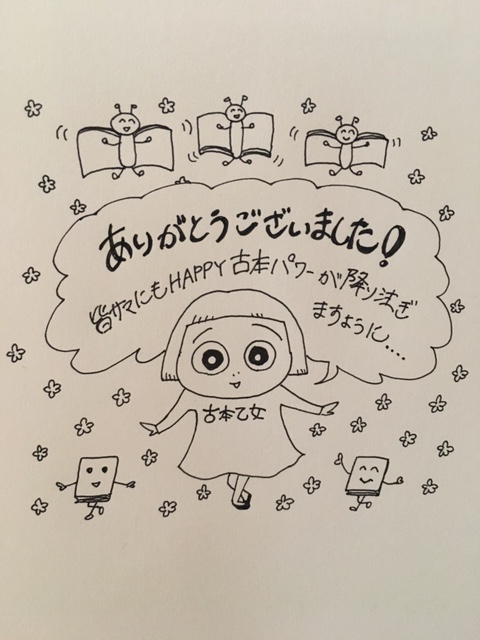 ありがとうございました!
皆サマにもHAPPY古本パワーが降り注ぎ
ますように....
古本乙女